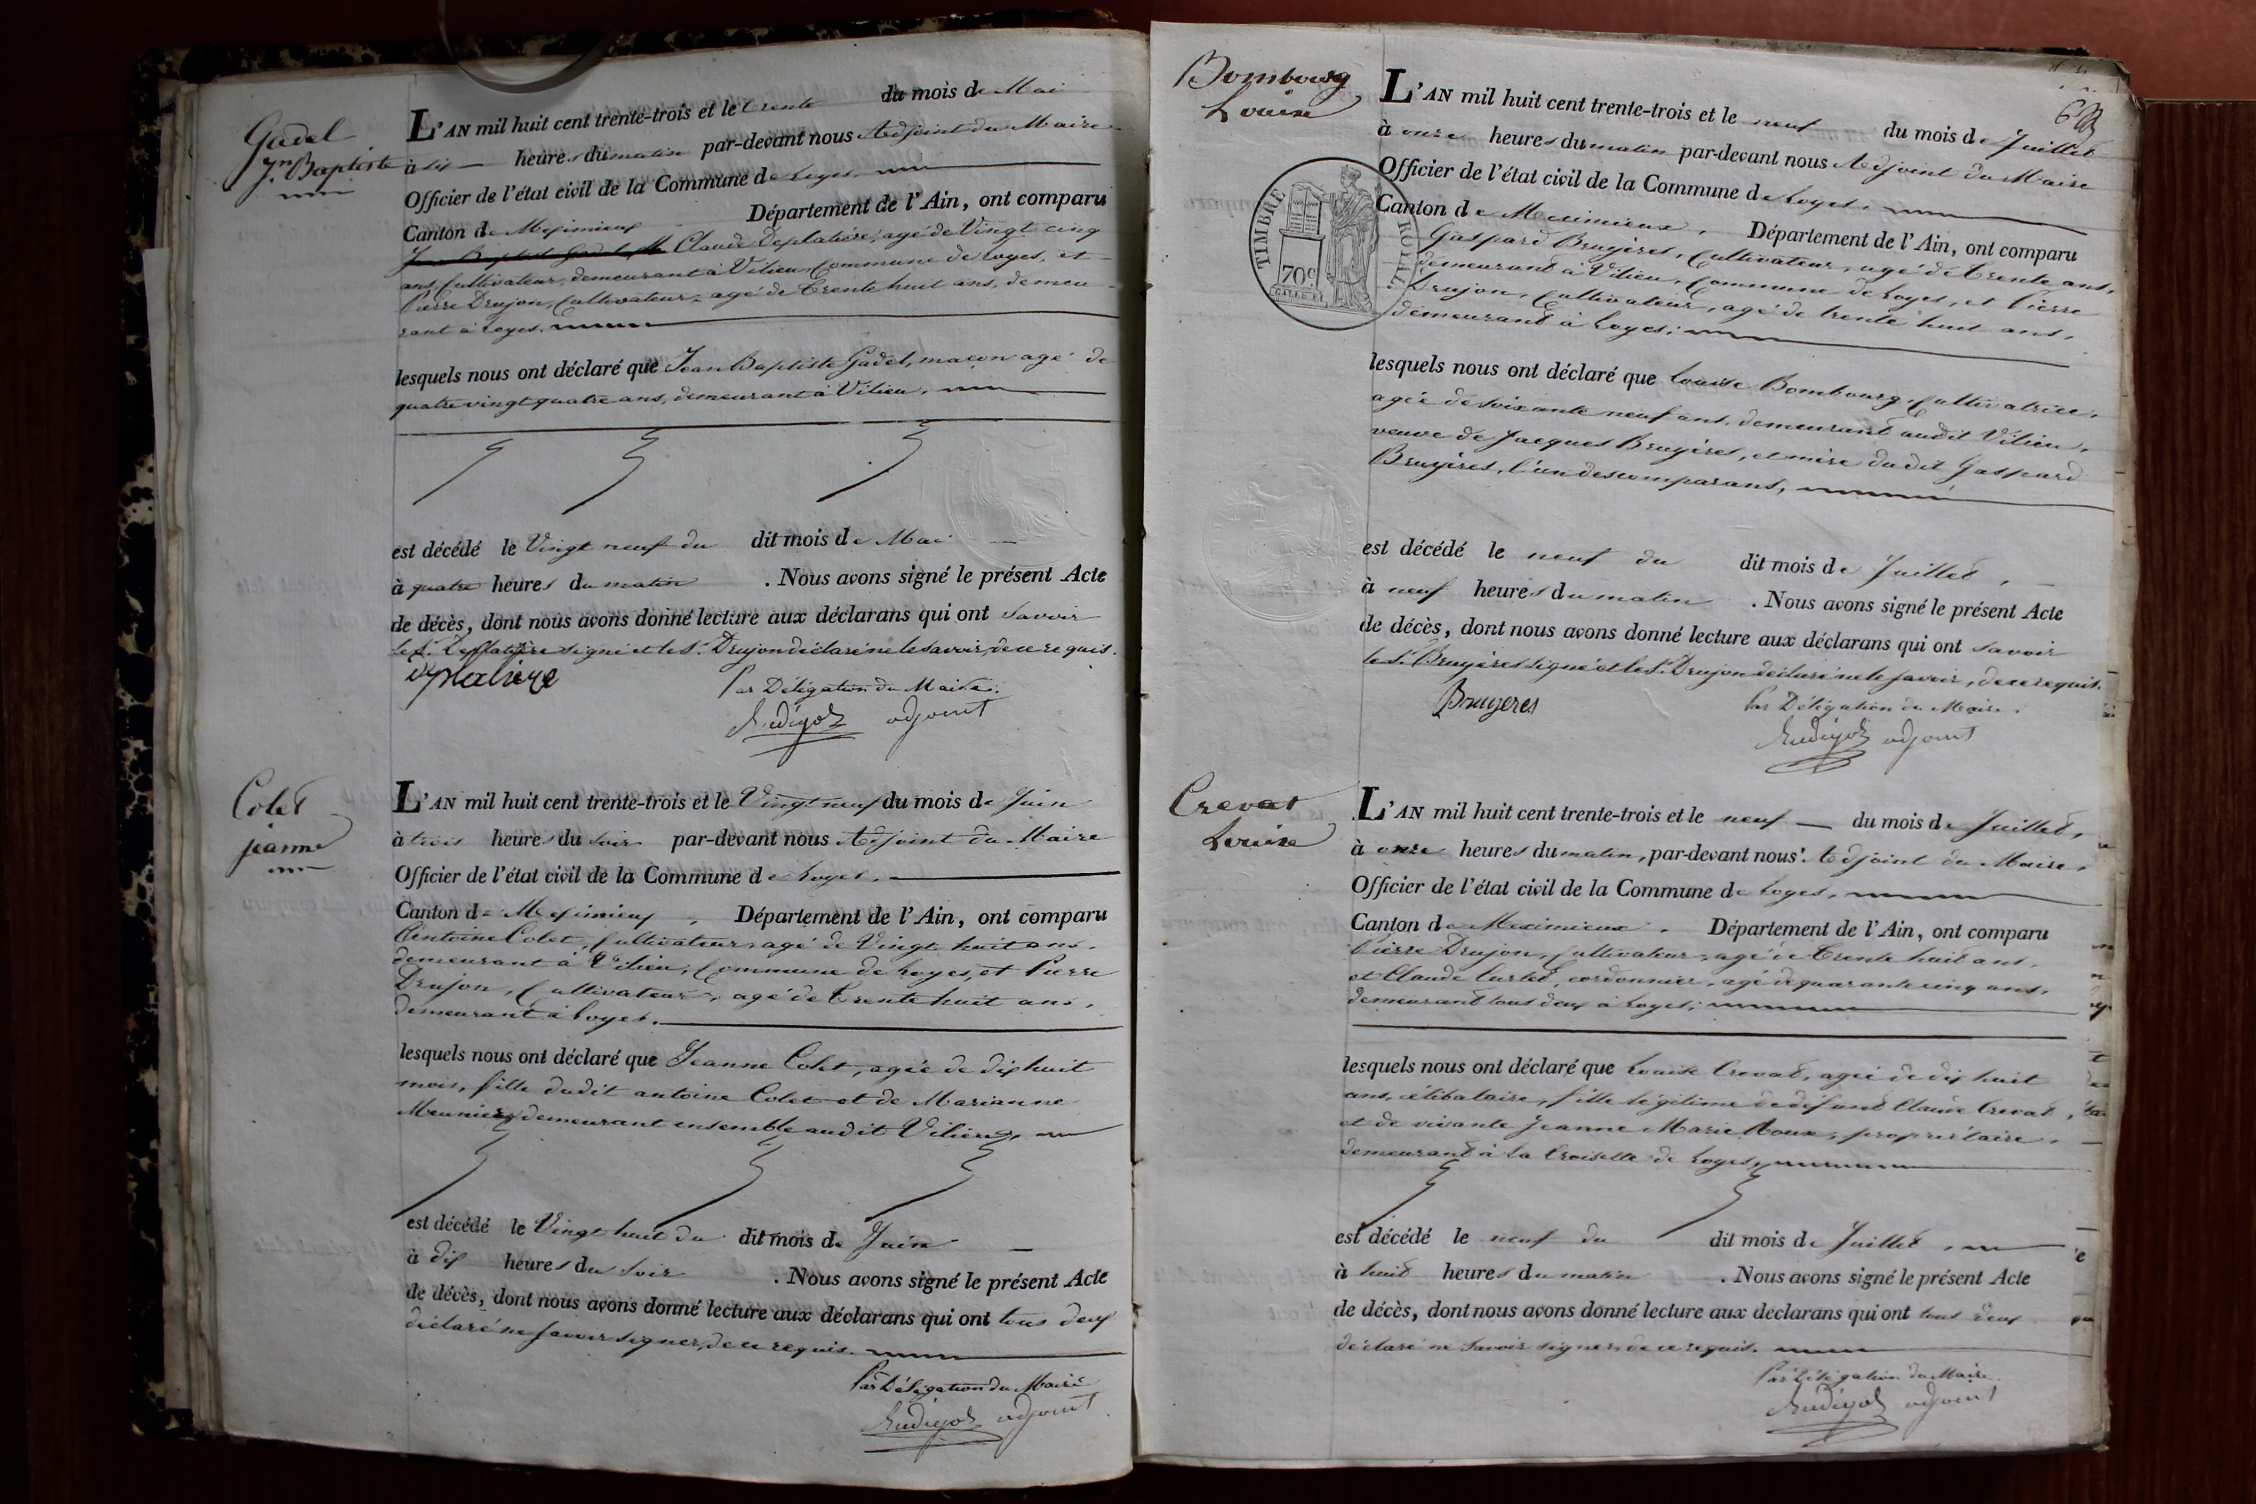 Gadel
Jn Baptiste
L'AN mil huit cent trente-trois et le trente du mois de Mai
à dix heures du matin par-devant nous Adjoint du Maire
Officier de l'état civil de la Commune de Loyes
Canton de Meximieux Département de l'Ain, ont comparu
Claude Deplatière, agé de Vingt cinq
ans, Cultivateur, demeurant à Vilieu, Commune de Loyes, et
Pierre Drujon, Cultivateur, agé de Trente huit ans, demeu-
rant à Loyes.
lesquels nous ont déclaré que Jean Baptiste Gadel, maçon agé de
quatre vingt quatre ans, demeurant à Vilieu,
est décédé le Vingt neuf du dit mois de Mai
à quatre heures du matin . Nous avons signé le présent Acte
de décès, dont nous avons donné lecture aux déclarans qui ont savoir
le Sr. Deplatière signé et le Sr. Drujon déclaré ne le savoir, de ce requis.
Deplatière Par Délégation du Maire.
adjoint
Colet
jeanne
L'AN mil huit cent trente-trois et le Vingt neuf du mois de Juin
à trois heures du soir par-devant nous Adjoint du Maire
Officier de l'état civil de la Commune de Loyes.
Canton de Meximieux, Département de l'Ain, ont comparu
Antoine Colet, Cultivateur, agé de Vingt huit ans,
demeurant à Vilieu, Commune de Loyes, et Pierre
Drujon, Cultivateur, agé de Trente huit ans,
demeurant à Loyes.
lesquels nous ont déclaré que Jeanne Colet, agée de dix huit
mois, fille dudit antoine Colet et de Marianne
Meunier, demeurant ensemble audit Vilieu,
est décédé le Vingt huit du dit mois de Juin
à dix heures du soir . Nous avons signé le présent Acte
de décès, dont nous avons donné lecture aux déclarans qui ont tous deux
déclaré ne savoir signer, de ce requis.
Par Délégation du Maire
adjoint
Bombourg
Louise
TIMBRE ROYAL
70c
L'AN mil huit cent trente-trois et le neuf du mois de Juillet
à onze heures du matin par-devant nous Adjoint du Maire
Officier de l'état civil de la Commune de Loyes.
Canton de Meximieux. Département de l'Ain, ont comparu
Gaspard Bruyères, Cultivateur, agé de trente ans,
demeurant à Vilieu, Commune de Loyes, et Pierre
Drujon, Cultivateur, agé de trente huit ans,
demeurant à Loyes;
lesquels nous ont déclaré que Louise Bombourg, Cultivatrice,
agée de soixante neuf ans, demeurant audit Vilieu,
veuve de Jacques Bruyères, et mère dudit Gaspard
Bruyères, l'un des comparans,
est décédé le neuf du dit mois de Juillet,
à neuf heures du matin . Nous avons signé le présent Acte
de décès, dont nous avons donné lecture aux déclarans qui ont savoir
le Sr. Bruyères signé et le Sr. Drujon déclaré ne le savoir, de ce requis.
Bruyeres Par Délégation du Maire.
adjoint
Crevat
Louise
L'AN mil huit cent trente-trois et le neuf du mois de Juillet,
à onze heures du matin, par-devant nous Adjoint du Maire,
Officier de l'état civil de la Commune de Loyes,
Canton de Meximieux. Département de l'Ain, ont comparu
Pierre Drujon, Cultivateur, agé de Trente huit ans,
et Claude Curtet, cordonnier, agé de quarante cinq ans,
demeurant tous deux à Loyes;
lesquels nous ont déclaré que Louise Crevat, agée de dix huit
ans, célibataire, fille légitime de défunt Claude Crevat,
et de vivante Jeanne Marie Roux, propriétaire,
demeurant à la Croisette de Loyes,
est décédé le neuf du dit mois de Juillet,
à huit heures du matin . Nous avons signé le présent Acte
de décès, dont nous avons donné lecture aux declarans qui ont tous deux
déclaré ne savoir signer, de ce requis.
Par Délégation du Maire
adjoint